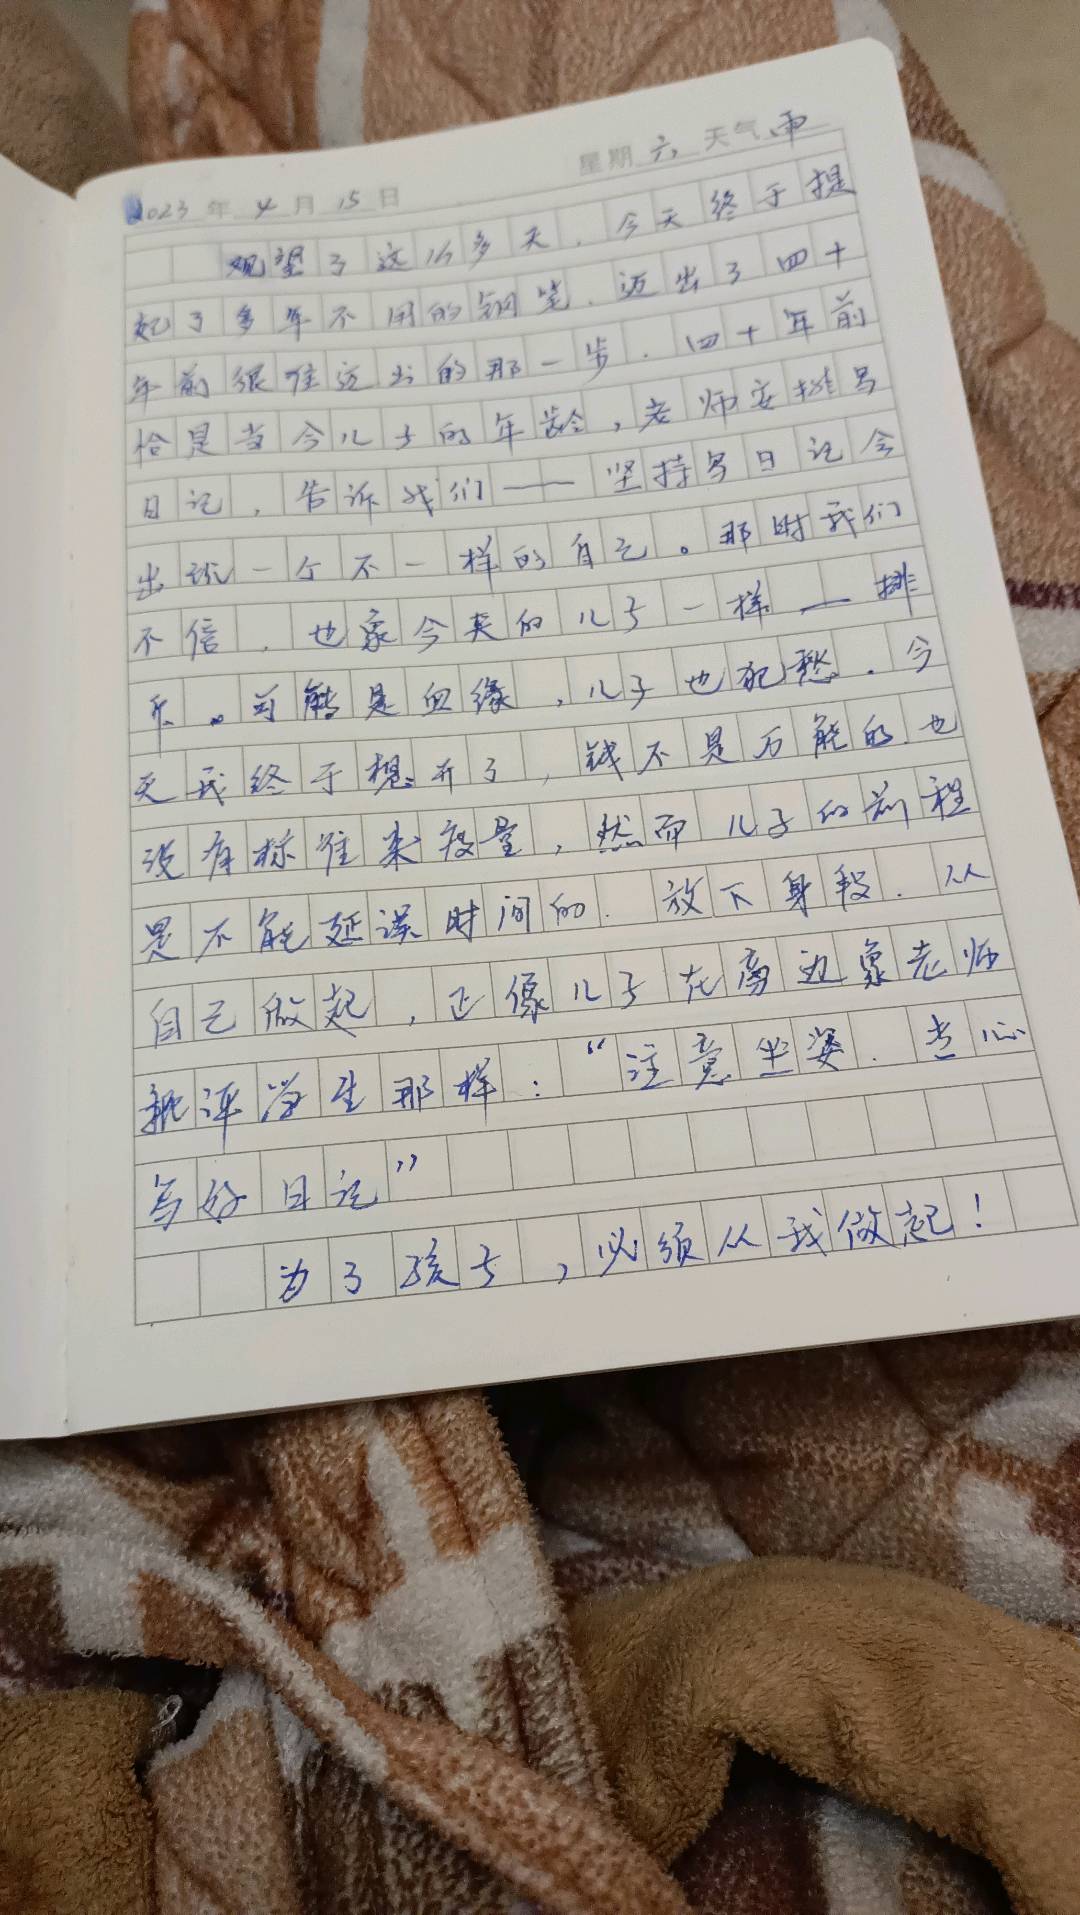 2023 年 4 月 15 日 星期 六 天气 雨
观望了这16多天，今天终于提
起了多年不用的钢笔，迈出了四十
年前很难迈出的那一步．四十年前
恰是当今儿子的年龄，老师安排写
日记，告诉我们——坚持写日记会
出现一个不一样的自己。那时我们
不信，也象今天的儿子一样—排
斥。可能是血缘，儿子也犯愁．今
天我终于想开了，钱不是万能的也
没有标准来度量，然而儿子的前程
是不能延误时间的．放下身段．从
自己做起，正像儿子在旁边象老师
批评学生那样：“注意坐姿．当心
写好日记”
为了孩子，必须从我做起！